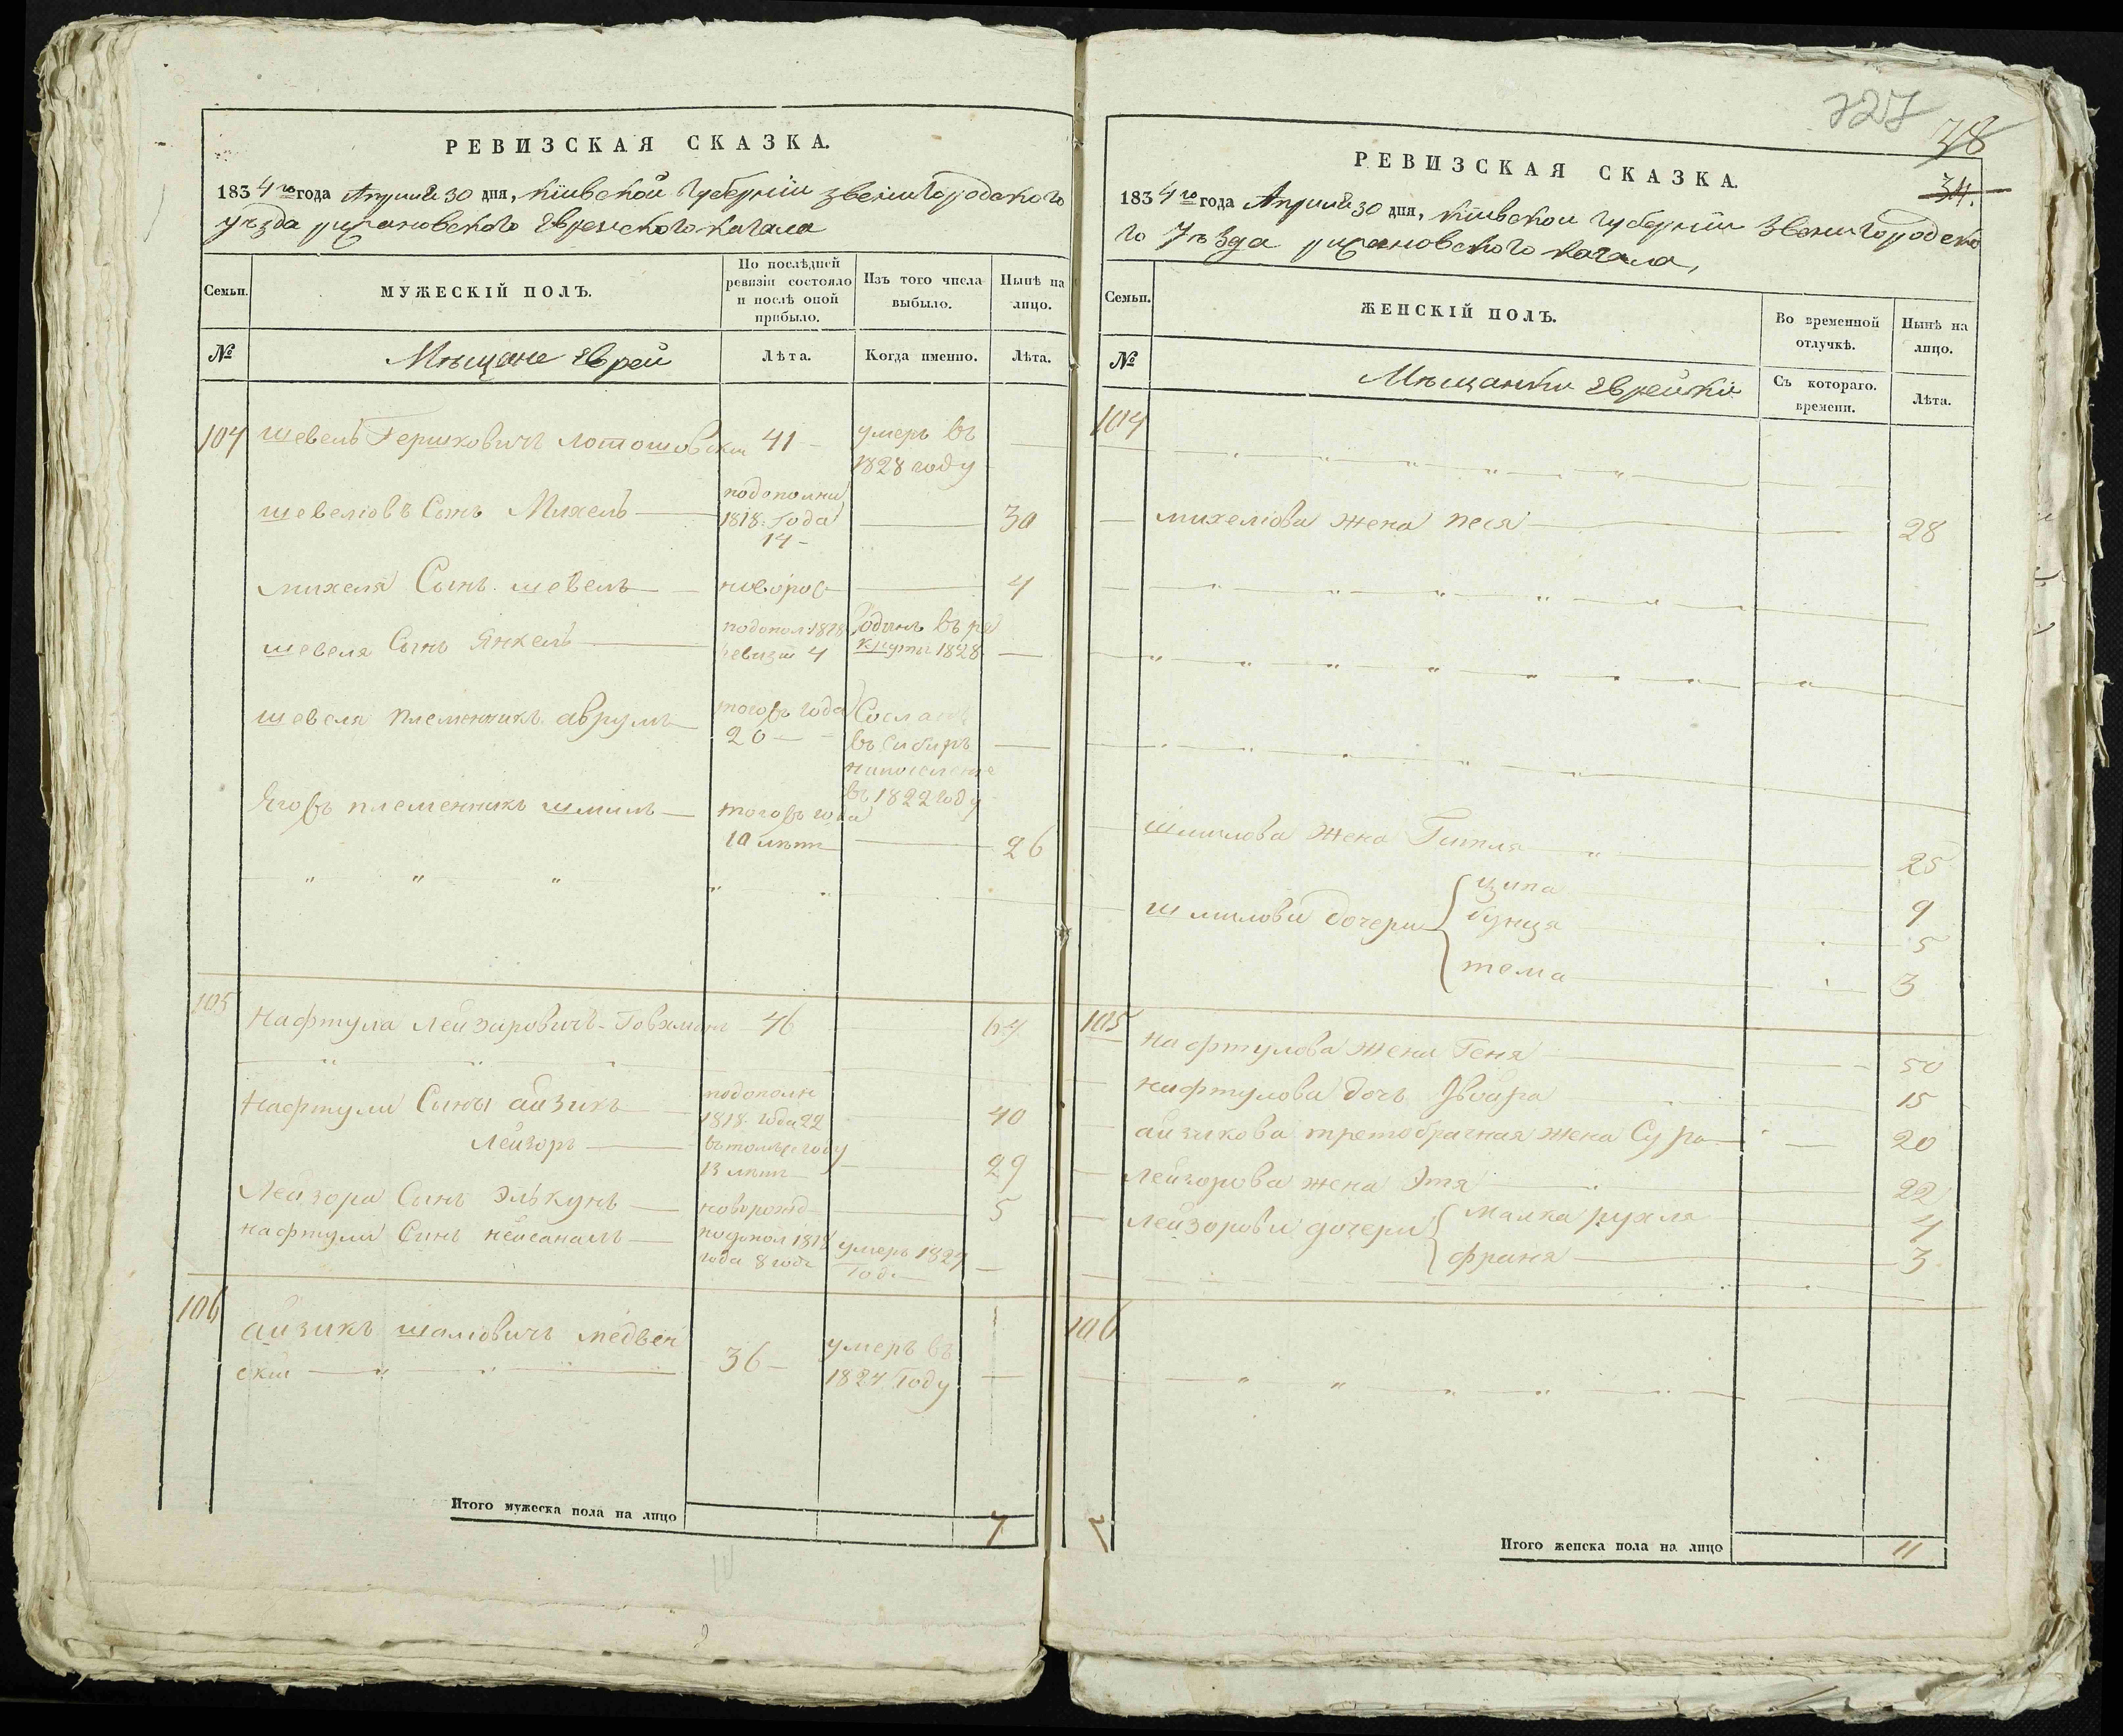 РЕВИЗСКАЯ СКАЗКА.
1834го года Апреля 30 дня, Кіивской Губерніи Звенигородского
уѣзда рижановского Еврейского Кагала
Семьи.
МУЖЕСКІЙ ПОЛЪ.
По послѣдней ревизіи состояло и послѣ оной прибыло.
Изъ того числа выбыло.
Нынѣ на лицо.
№
Мѣщане Евреи
Лѣта.
Когда именно.
Лѣта.
104 шевель Гершковичъ лотошовскіи 41 умеръ въ
1828 году
шевеліовъ Сынъ Михель подополни
1818: Года 30
14
михеля Сынъ шевель новорож 4
шевеля Сынъ Янкель подопол: 1818 Отданъ въ ре
ревизіи 4 круты 1828
шевеля племенникъ аврумъ тогожъ года Сосланъ
20 въ Сибирь
на поселеніе
въ 1822 году
Ягожъ племенникъ шмиль тогожъ года
10 лѣтъ 26
105 нафтула лейзаровичъ Говхманъ 46 64
нафтули Сыны айзикъ подополн
1818 года 22 40
лейзоръ въ томъже году
13 лѣтъ 29
Лейзора Сынъ элькунъ новорожд 5
нафтули Сынъ нейсаналь подопол 1818 умеръ 1827
года 8 годъ Года
106 айзикъ шаліовичъ медвен
скіи 36 умеръ въ
1824 Году
Итого мужеска пола на лицо 7
727
38
34.
РЕВИЗСКАЯ СКАЗКА.
1834го года Апреля 30 дня, Кіивской Губерніи Звенигородско
го Уѣзда рижановского Кагала,
Семьи.
ЖЕНСКІЙ ПОЛЪ.
Во временной отлучкѣ.
Нынѣ на лицо.
№
Мѣщанки Еврейки
Съ котораго времени.
Лѣта.
104
михеліова жена песя 28
шмилова жена Гитля 25
шмилови дочери ципа 9
бунця 5
тема 3
105 нафтулова жена Геня 50
нафтулова дочь Двойра 15
айзикова третобрачная жена Сура 20
лейзорова жена Этя 22
лейзорови дочери малка рухля 4
франя 3
106
7
Итого женска пола на лицо 11